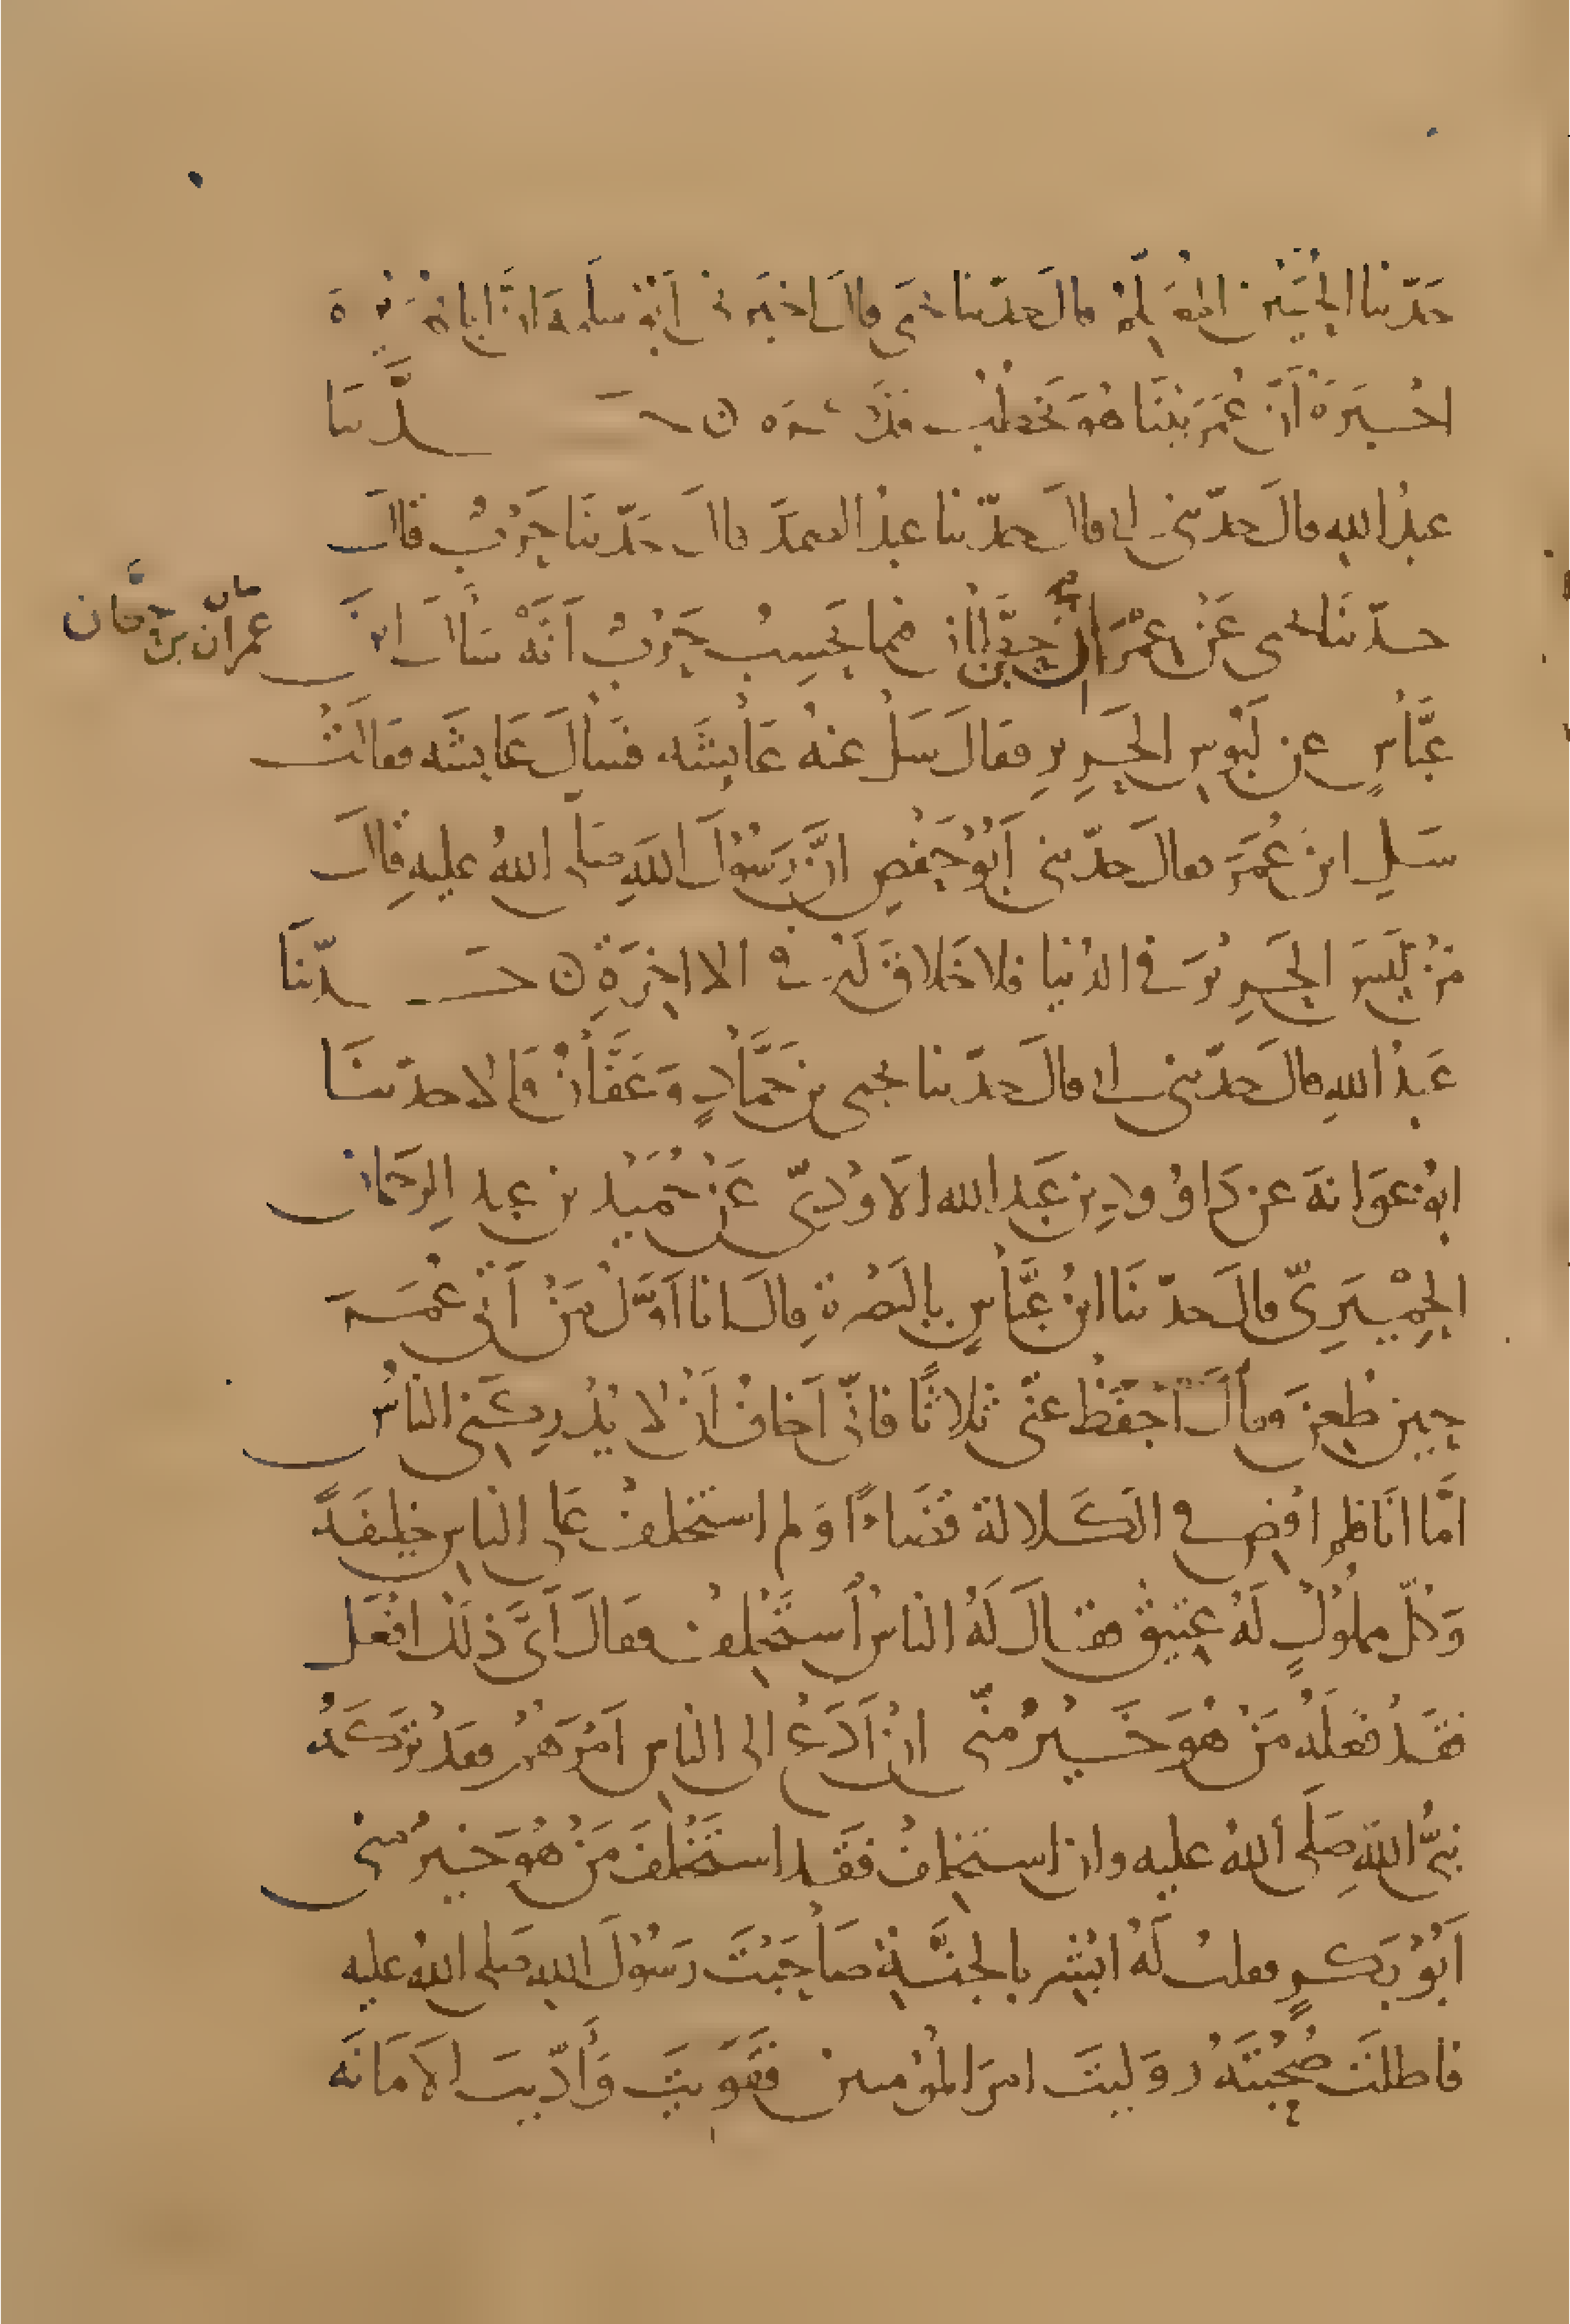 حَدّثنا الحُسَيْن المُعَلِّمْ قالَ حدّثنا يحيَى قالَ اخبَرنى اَبُوْ سلَمهَ انَّ ابا هُرَيْرهَ
اخْبرَهُ اَنَّ عُمَرَ بَيْنَا هُوَ يَخطُبُ فذَكَرَه ن حَـــــدَّثنا
عبدُ الله قالَ حدّثنى ابى قالَ حدّثنا عبدُ الصمَدَ قالَ حَدّثنَا حَرْبُ قالَ
حدّثنَا يحيى عَنْ عِمْرَانَ بن حِطَّانَ فيما يَحسِبُ حَرْبُ اَنَّهْ سَأل ابنَ
عمران بن حطان
عبَّاسٍ عن لَبُوسِ الحَرِيرِ فقالَ سَلْ عنهُ عَايشَه فسَألَ عَايشَه فقالَتْ
سَلِ ابنَ عُمَرَ فقالَ حدّثنى أَبُوْ حَفْصٍ انَّ رَسُوْلَ اللهِ صَلى اللهُ عليه قالَ
مَنْ لَبِسَ الحَرِيْرَ فى الدُنيا فلا خَلاقَ لَهُ فى الاخِرَةِ ن حَـــــدّثنَا
عَبدُ اللهِ قالَ حدّثنى ابى قالَ حدّثنا يحيى بن حَمَّادٍ وَعَفَّانُ قَالا حدّثنَا
ابُوْ عَوَانهَ عن دَاوُودِ بن عَبدِ الله الاَوْدِىّ عَنْ حُمَيْدِ بن عبد الرحمان
الحِمْيَرِىّ قالَ حدّثنَا ابنُ عبَّاسٍ بالبَصْرةِ قالَ انا اَوَّلُ مَنْ اَتَى عُمَرَ
حِينَ طُعِنَ وقالَ احْفَظْ عَنّى ثَلاثًا فانّى اَخافُ اَنْ لا يُدْرِكَنى الناسُ
امَّا انَا فلم اقْضِ فى الكَلالة قَضَاءً ا وَلم استَخلفْ عَلى الناسِ خليفَةً
وَكُلّ مملُوْكٍ لَهُ عَتيقٌ فقالَ لَهُ الناسُ اَستَخْلِفْ فقالَ اَىَّ ذلكَ افْعَل
فَقَدْ فعَلَهُ مَنْ هُوَ خَيْرٌ مِنّى انْ اَدَعْ الى الناسِ اَمْرَهُمْ فقدْ تَرَكَهُ
نبىُّ اللهِ صَلَى اللهُ عليه وان استَخلفْ فَقَد استَخْلَفَ مَنْ هُوَ خَيرٌ منى
اَبُوْ بَكرٍ فقلتُ لَهُ ابْشِر بالجنَّةِ صَاحَبْتَ رَسُوْلَ الله صَلى اللهُ عليه
فاطَلتَ صُحْبَتَهُ وَوَلِيْتَ امرَ المُؤْمِنِين فَقَوِيتَ وَاَدّيتَ الاَمَانَه